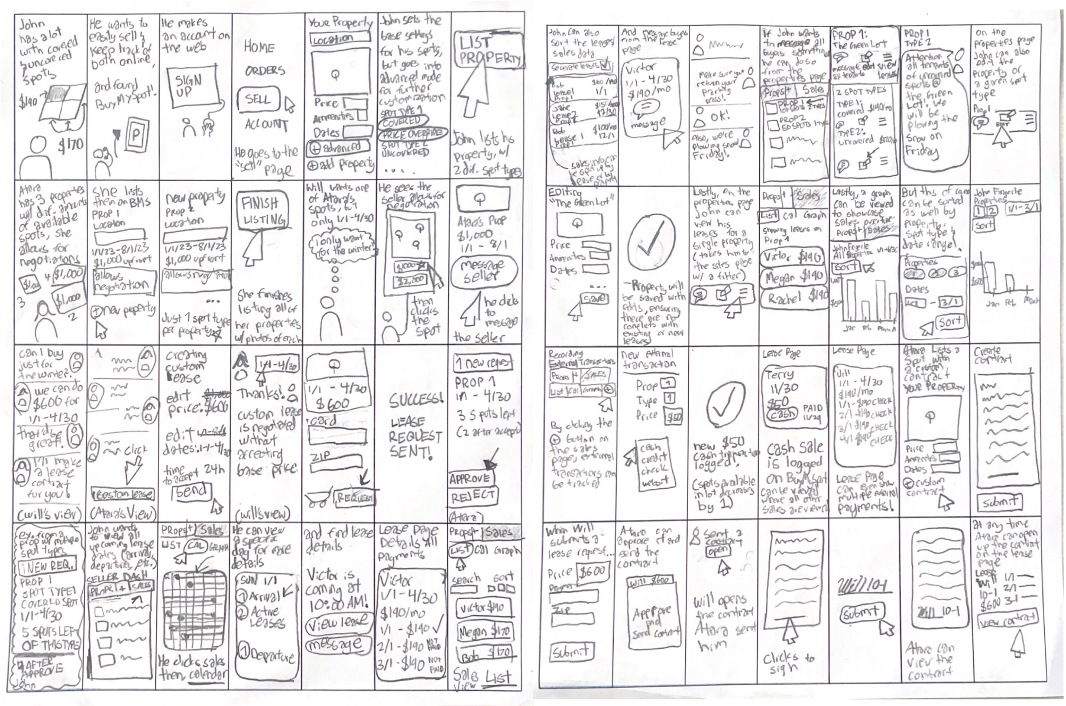 John
has a lot
with covered
uncovered
spots
$140
$170
He wants to
easily sell &
keep track of
both online,
and found
BuyMySpot!
He makes
an account on
the web
SIGN
UP
HOME
ORDERS
SELL
ACCOUNT
He goes to the
"sell" page
Your Property
Location
Price
Amenities
Dates
advanced
add property
John sets the
base settings
for his spots,
but goes into
advanced mode
for further
customization
SPOT TYPE 1
COVERED
PRICE OVERRIDE
SPOT TYPE 2
UNCOVERED
....
LIST
PROPERTY
John lists his
property, w/
2 diff. spot types
Atara
has 3 properties
w/ diff. amounts
of available
spots, she
allows for
negotiations
$1,000
3
2
She lists
them on BMS
PROP 1
Location
1/1/23-8/1/23
$1,000 upfront
allows
negotiation
new property
new property
Prop 2
Location
1/1/23-8/1/23
$1,000 upfront
...
Just 1 spot type
per property
FINISH
LISTING
She finishes
listing all of
her properties
w/ photos of each
Will wants one
of Atara's
spots, but
only 1/1-4/30
i only want
for the winter!
He sees the
seller allows for
negotiation
$2,000
then
clicks
the
spot
Atara's Prop
$1,000
1/1 - 8/1
message
seller
he clicks
to message
the seller
can I buy
just for
the winter?
we can do
$600 for
1/1-4/30
that'd be
great!
I'll make
a lease
contract
for you!
(Will's view)
click
custom lease
(Atara's View)
creating
custom
lease
edit
price: $600
edit
dates: 1/1-4/30
time
to accept 24h
send
1/1-4/30
Thanks!
custom lease
is negotiated
without
accepting
base price.
(will's view)
1/1 - 4/30
$600
card
ZIP
REQUEST
SUCCESS!
LEASE
REQUEST
SENT!
1 new request
PROP 1
1/1 - 4/30
3 spots left
(2 after accepted)
APPROVE
REJECT
(Atara)
ex. from a
prop w/ multiple
spot types
1 NEW REQ.
PROP 1
SPOT TYPE 1
COVERED SPOT
1/1-4/30
5 SPOTS LEFT
OF THIS TYPE
4 AFTER
APPROVE
John
John wants
to view all
upcoming lease
dates (arrival,
departure, etc.)
SELLER DASH
Props
Sales
LIST CAL GRAPH
He clicks sales
then, calendar
He can view
a specific
day for lease
details
SUN 1/1
1 Arrival
2 Active
Leases
1 Departure
and find lease
details
Victor is
coming at
10:00 AM!
View lease
message
Lease Page
Details All
Payments
Victor
1/1 - 4/30
$140/mo
1/1 - $140 ✓
2/1 - $140 NOT PAID
3/1 - $140 NOT PAID
Props Sales
List Cal Graph
search sort
Victor $140
Megan $170
Bob $170
Sale List
View
John can also
sort the leases/
sales data
And message buyers
from the lease
page
Victor
1/1 - 4/30
$140/mo
message
Make sure you
renew your
parking
pass!
OK!
Also, we're
plowing snow
Friday!
If John wants
to message all
buyers something
he can do so
from the
properties page
Props Sales
PROP 1
PROP 2
PROP 1:
The Green Lot
2 SPOT TYPES
TYPE 1:
covered $170/mo
TYPE 2:
uncovered $140/mo
PROP 1
TYPE 2
Attention
all tenants
of uncovered
spots @
the Green
Lot! We
will be
plowing the
snow on
Friday
On the
properties page
John can also
edit the
property or
a given spot
type
Prop 1
EDIT
Editing
"The Green Lot"
Price
Amenities
Dates
Save
Property
will be
saved with
edits, ensuring
there are no
conflicts with
existing or new
leases!
Lastly, on the
properties page
John can
view his
leases
for a single
property
(takes him to
the sales page
w/ a filter)
Props Sales
List Cal Graph
showing leases on
Prop 1
Victor $140
Megan $140
Rachel $140
Lastly, a graph
can be viewed
to showcase
sales overtime
Props Sales
John Fingerlie
All Properties
Sort
But this of course
can be sorted
as well by
property,
spot type &
date range!
Properties
Dates
1/1 - 3/1
Sort
John Fingerlie
Properties
1 2
1/1-3/1
Sort
Jan Feb March
Recording
External Transactions
Props SALES
List Cal Graph
By clicking
the + button on
the sales
page, external
transactions can
be tracked
new external
transaction
Prop 1
Type 1
Price $50
Cash
credit
check
new $50
cash transaction
logged!
(spots available
in lot decreases
by 1)
Lease Page
Terry
11/30
$50
cash
PAID
11/29
Cash sale
is logged
on BuyMySpot
can be viewed
where all other
sales are viewed
Lease Page
Will
1/1 - 4/30
1/1 - $140 CHECK
2/1 - $140 CHECK
3/1 - $140 CHECK
4/1 $140 CHECK
Lease Page
can even show
multiple external
payments!
Atara Lists a
Spot with
a custom
contract
YOUR PROPERTY
Price
Amenities
Dates
custom
contract
Create
contract
Submit
When Will
submits a
lease request...
Price $600
Payment
Zip
Submit
Atara can
approve it and
send the
contract
Will $600
Approve
and send contract
sent a
contract
open
Will opens
the contract
Atara sent
him
Clicks to
sign
Will 10-1
Submit
Will 10-1
Atara can
view the
contract
At any time
Atara can
open up the
contract on
the lease
page
Lease
Will
10-1
$600
1/1
2/1
3/1
view contract